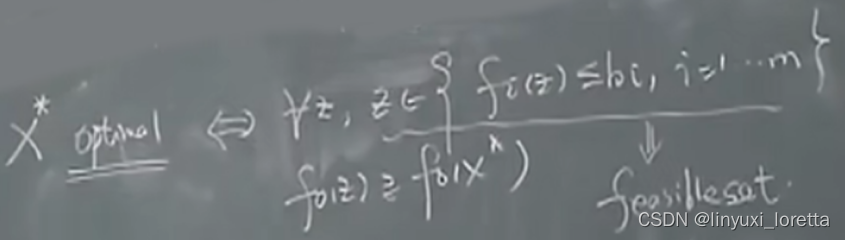 X* optimal ⇔ ∀z, z∈{ fi(z) ≤ bi, i=1…m }
f0(z) ≥ f0(x*) ⇓
feasible set.
CSDN @linyuxi_loretta